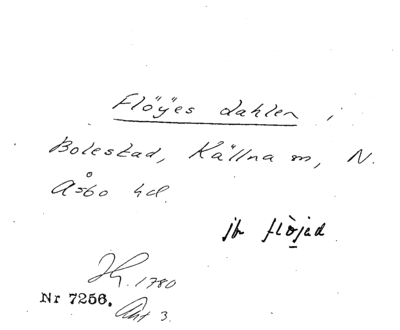 Flöÿes dahlen i
Bolestad, Källna sn, N.
Åsbo hd.
jfr flöjed
Jh. 1780
Nr 7256. Akt 3.